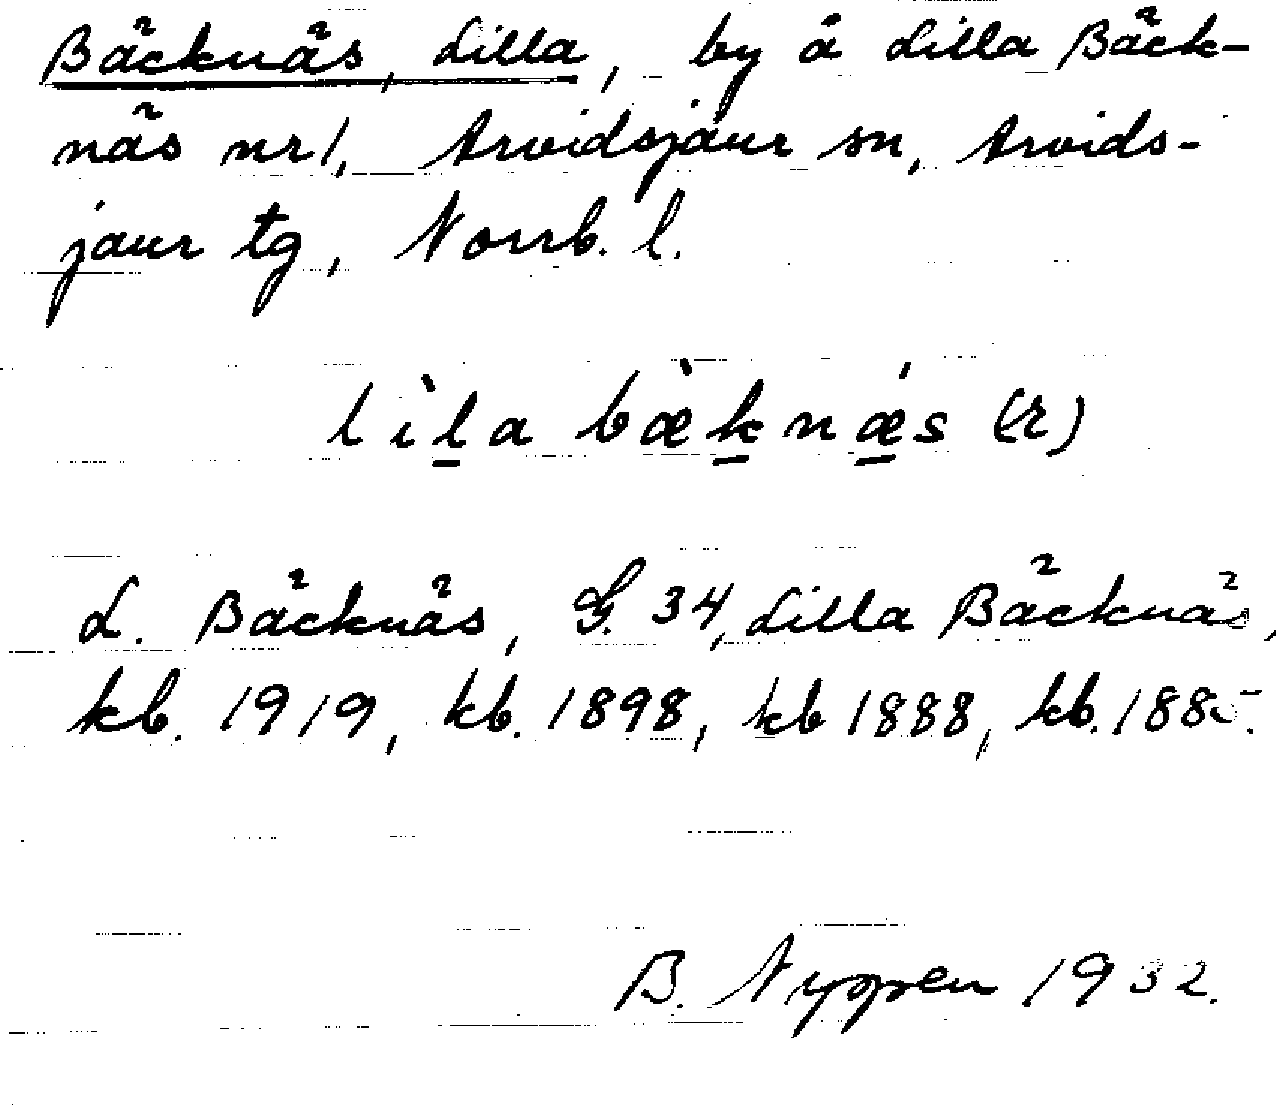 Bäcknäs, Lilla, by å Lilla Bäck-
näs nr 1, Arvidsjaur sn, Arvids-
jaur tg, Norrb. l.
lìl̲a bæ̀k̲nǽ̲s (r)
L. Bäcknäs, G. 34, Lilla Bäcknäs,
kb. 1919, kb. 1898, kb 1888, kb. 1885.
B. 1932.